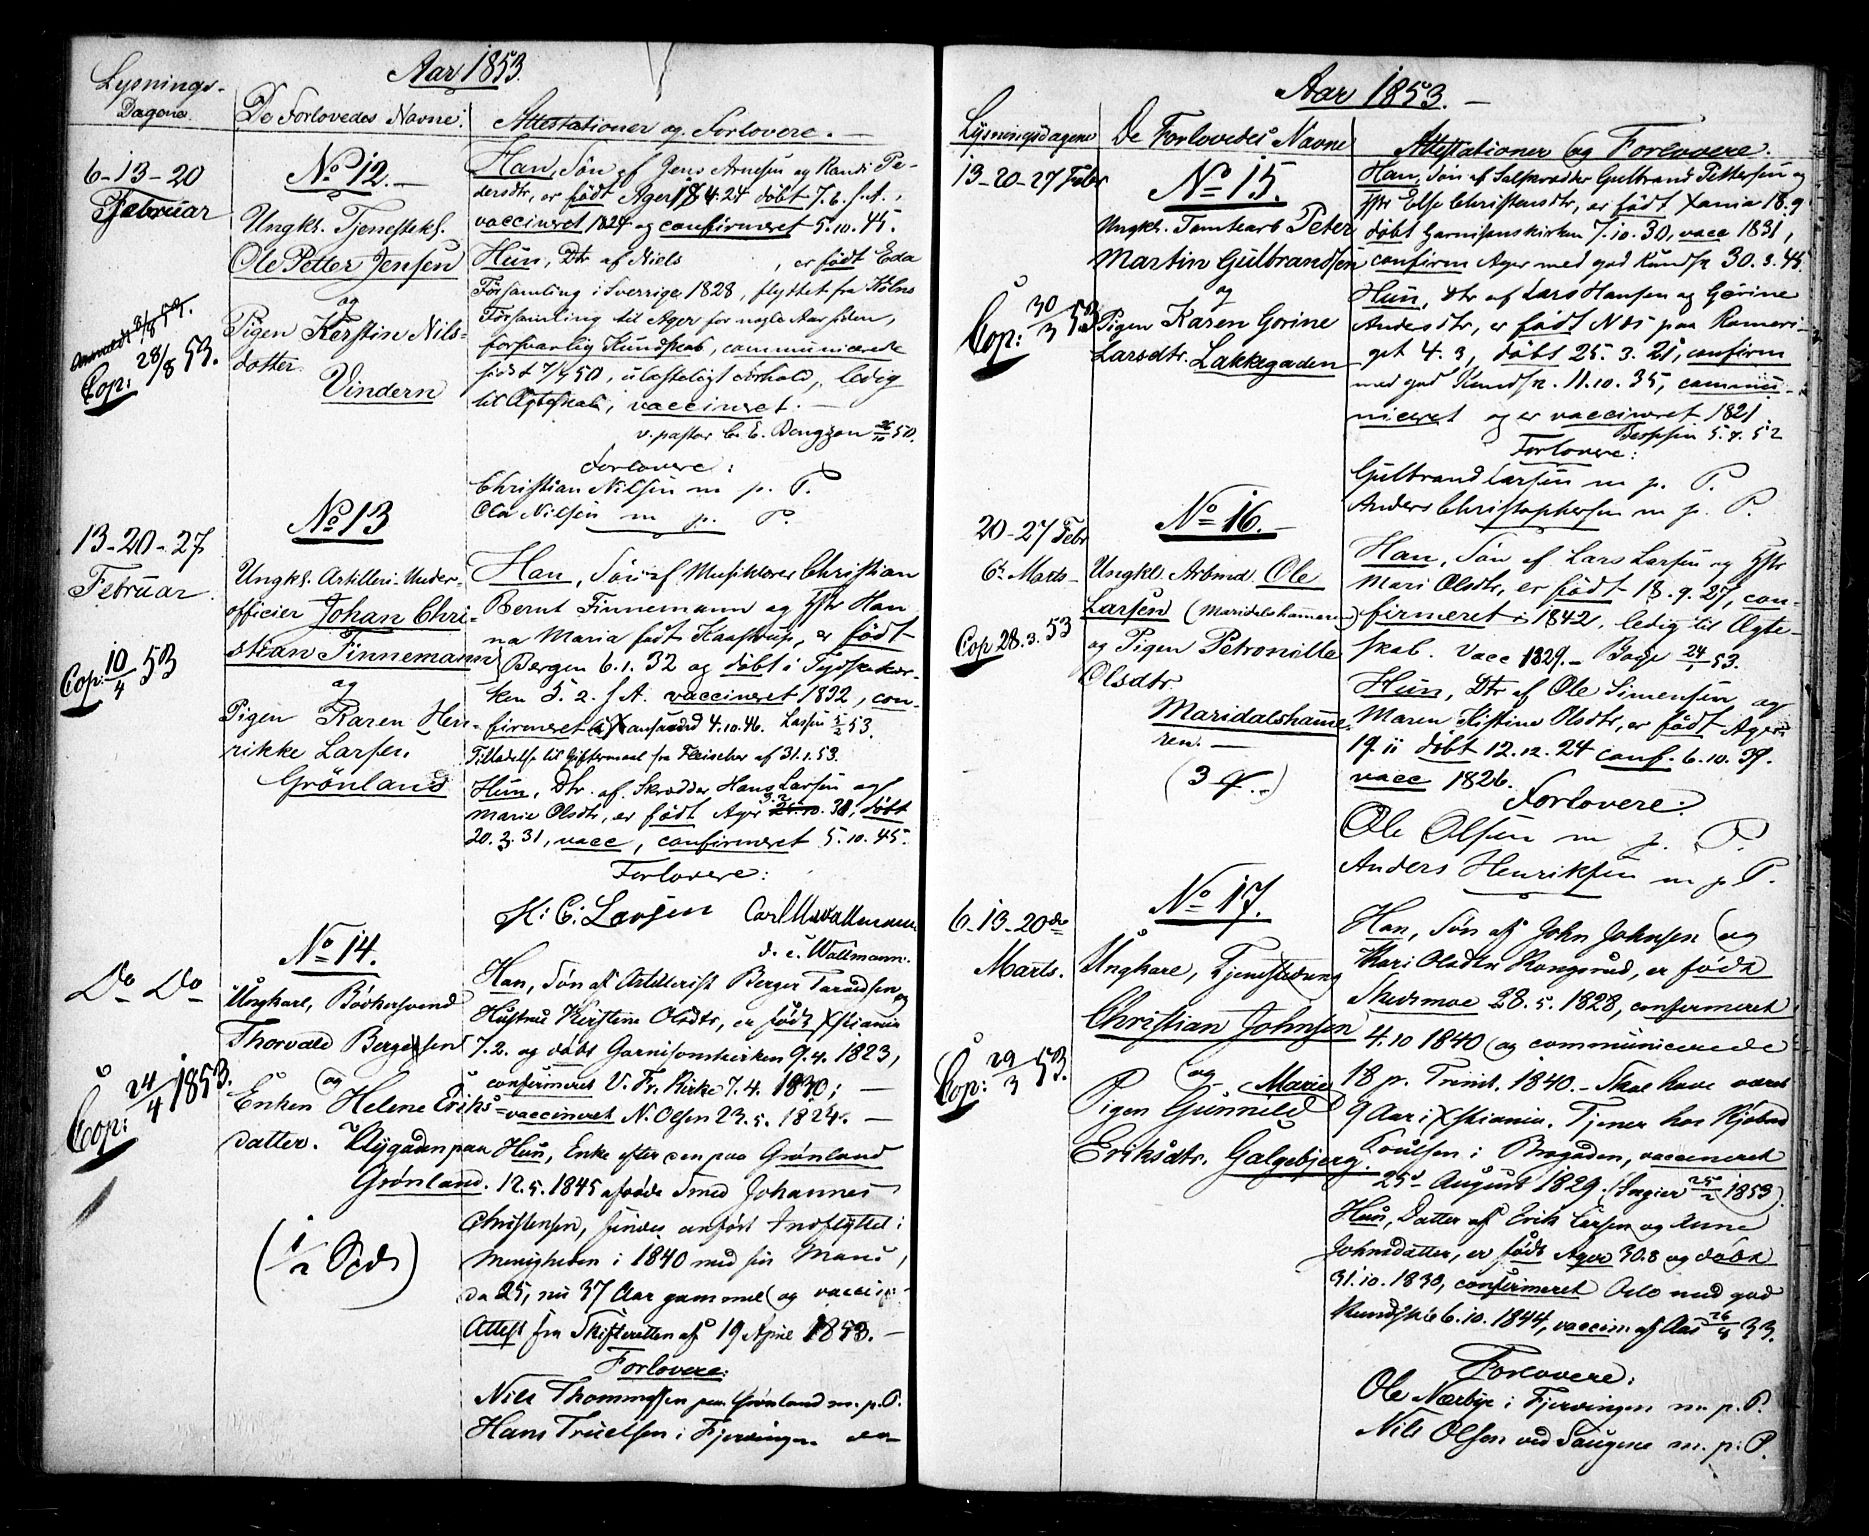 Aar 1853.
Lysnings-
Dagene
De Forlovedes Navne:
Attestationer og Forlovere. —
6-13-20
Februar
Anmeldt
Cop: 28/8 53.
No 12. —
Ungk. Tjenestek.
Ole Petter Jensen
og
Pigen Kerstin Nils-
dotter.
Vindern
Han, Søn af Jens Arnesen og Randi Pe-
dersdtr, er født Ager 18 4. 24 døbt 7. 6. s. A.,
vaccineret 1824 og confirmeret 5. 10. 45.
Hun, Dtr af Niels , er født Eda
Församling i Sverrige 1828, flyttet fra
Församling til Ager for nogle Aar siden,
forsvarlig Kundskab, communicerede
sidst 7/4 50, ulasteligt Forhold, ledig
til Ægteskab, vaccineret. —
v. pastor C. E. Bengzon 50.
Forlovere:
Christian Nilsen m. p. P.
Ola Nilsen m. p. P.
13-20-27
Februar
Cop: 10/4 53
No 13
Ungk. Artilleri-Under-
officier Johan Chri-
stian Finnemann
og
Pigen Karen Hen-
rikke Larsen.
Grönland
Han, Søn af Musikører Christian
Bernt Finnemann og Hstr Han
na Maria født Kaastrup, er født
Bergen 6. 1. 32 og døbt i Tydskekir-
ken 5. 2. s. A. vaccineret 1832, con-
firmeret 4. 10. 46. Lassen 5/2 53.
Tilladelse til Giftermaal fra Fleischer af 31. 1. 53.
Hun, Dtr. af Skrædder Hans Larsen og
Marie Olsdtr, er født Ager 30, døbt
20. 3. 31, vacc, confirmeret 5. 10. 45.
Forlovere:
H: C: Larsen Carl Wallmann
d. e. Wallmann.
Do Do
Cop: 24/4 1853.
No 14.
Ungkarl, Bödkersvend
Thorvald Bergersen
og
Enken Helene Eriks-
datter. Klygaden paa
Grønland.
(1/2 Spd)
Han, Søn af Artillerist Berger Tarandsen og
Hustru Kirstine Olsdtr, er født Xstiania
7. 2. og døbt Garnisonskirken 9. 4. 1823,
confirmeret V. Fr. Kirke 7. 4. 1830; —
vaccineret N. Olsen 23. 5. 1824. —
Hun, Enke efter den paa Grønland
12. 5. 1845 afdøde Smed Johannes
Christensen, findes anført Indflyttet i
Menigheden i 1840 med sin Mand,
da 25, nu 37 Aar gammel og vaccin:
Attest fra Skifteretten af 19 April 1853. —
Forlovere:
Nils Thommessen paa Grønland m. p. P.
Hans Truelsen i Fjerdingen do
Aar 1853. —
Lysningsdagene
De Forlovedes Navne
Attestationer og Forlovere.
13-20-27 Febr
Cop: 30/3 53
No 15.
Ungk. Tomtearb Peter
Martin Gulbrandsen
og
Pigen Karen Gorine
Larsdtr. Lakkegaden
Han, Søn af Gulbrand Pettersen og
Hstr Else Christensdtr, er født Xania 18. 9
døbt Garnisonskirken 7. 10. 30, vacc 1831,
confirm Ager med god Kundsk 30. 3. 45.
Hun, Dtr af Lars Hansen og Gorine
Andersdtr, er født Næs paa Romeri-
get 4. 3, døbt 25. 3. 21, confirm
med god Kundsk. 11. 10. 35, commu-
niceret og er vaccineret 1821.
5. 4. 52
Forlovere:
Gulbrand Larsen m. p. P.
Anders Christophersen m. p. P
20-27 Febr
6. Marts
Cop 28. 3. 53
No 16. —
Ungkl. Arbmd. Ole
Larsen (Maridalshammeren)
og Pigen Petronille
Olsdtr.
Maridalshamme-
ren. —
(3 —)
Han, Søn af Lars Larsen og Hstr
Mari Olsdtr, er født 18. 9. 27, con-
firmeret i 1842, ledig til Ægte-
skab. Vacc 1829. — 24/1 53.
Hun, Dtr af Ole Simensen og
Maren Kistine Olsdtr, er født Ager
19 11 døbt 12. 12. 24 conf. 6. 10. 39.
vacc 1826.
Forlovere:
Ole Olsen m. p. P.
Anders Henriksen m. p. P.
6-13-20de
Marts.
Cop: 29/3 53.
No 17.
Ungkarl, Tjenestedreng
Christian Johnsen
og
Pigen Gunnild Marie
Eriksdtr. Galgebjerg.
Han, Søn af John Johnsen og
Kari Olsdtr Kongsrud, er født
Skedsmoe 28. 5. 1828, confirmeret
4. 10 1840 og communicerede
18 p. Trinit. 1840. — Skal have været
9 Aar i Xstiania. Tjener hos Kjøbmd
Poulsen i Brogaden, vaccineret
25d August 1829. (Ingier 25/2 1853).
Hun, Datter af Erik Larsen og Anne
Johnsdatter, er født Ager 30. 8 og døbt
31. 10. 1830, confirmeret Oslo med god
Kundsk 6. 10. 1844, vaccin. af Aas 26/8 33.
Forlovere:
Ole Nærbye i Fjerdingen m. p. P.
Nils Olsen ved Saugene m. p. P.